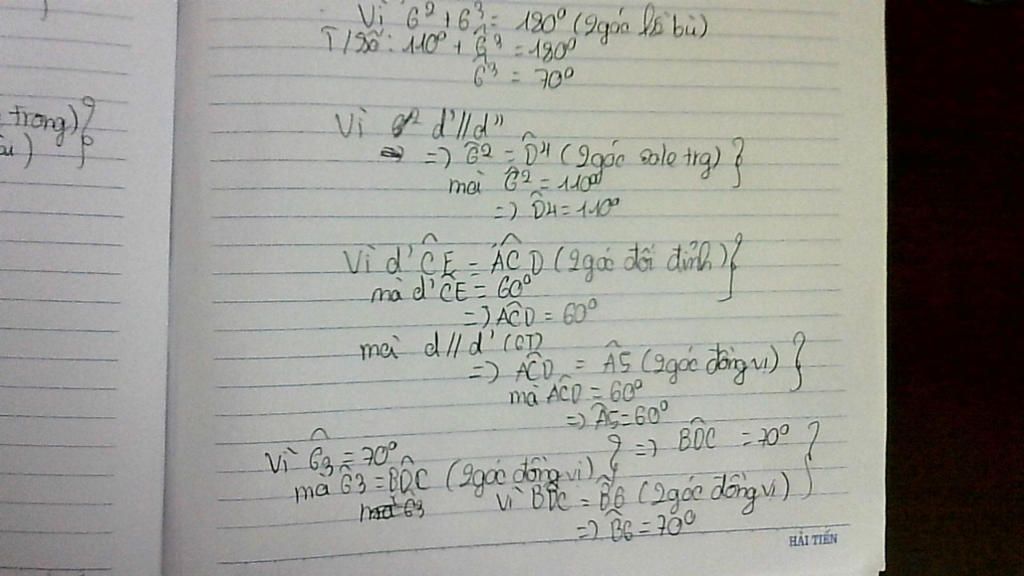 trong)}
Vì G2 + G3 = 180° (2góc kề bù)
T/số: 110° + Ĝ3 = 180°
Ĝ3 = 70°
Vì d'//d"
=> Ĝ2 = D̂4 (2góc sole trg) }
mà Ĝ2 = 110°
=> D̂4 = 110°
Vì d'ĈE = AĈD (2góc đối đỉnh)}
mà d'ĈE = 60°
=> AĈD = 60°
mà d // d' (CT)
=> AĈD = Â5 (2góc đồng vị) }
mà AĈD = 60°
=> Â5 = 60°
Vì Ĝ3 = 70° } => BD̂C = 70° }
mà Ĝ3 = BD̂C (2góc đồng vị)
vì BD̂C = B̂6 (2góc đồng vị)
=> B̂6 = 70°
HẢI TIẾN